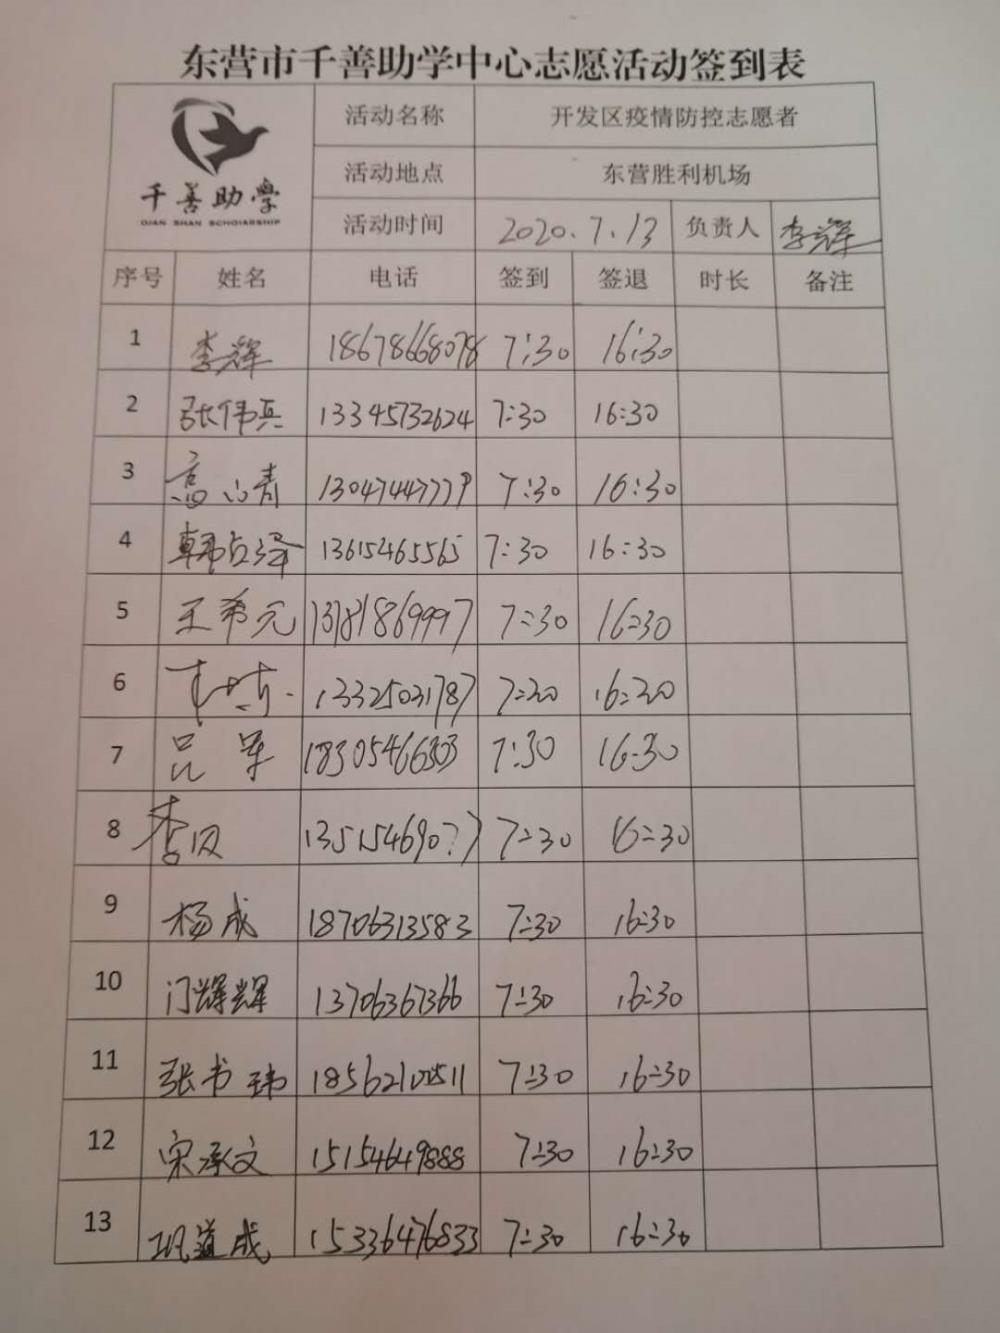 东营市千善助学中心志愿活动签到表
千善助学
QIAN SHAN SCHOLARSHIP
活动名称 开发区疫情防控志愿者
活动地点 东营胜利机场
活动时间 2020.7.13 负责人 李辉
序号 姓名 电话 签到 签退 时长 备注
1 李辉 18678668078 7:30 16:30
2 张伟兵 13345732624 7:30 16:30
3 高 青 13047447779 7:30 16:30
4 韩 泽 13615465565 7:30 16:30
5 王希元 13181869997 7:30 16:30
6 13325031787 7:30 16:30
7 吕军 18305466303 7:30 16:30
8 李 7:30 16:30
9 杨成 18706313583 7:30 16:30
10 门辉辉 13706367366 7:30 16:30
11 张书玮 7:30 16:30
12 宋承文 15154649888 7:30 16:30
13 巩道成 15336476833 7:30 16:30